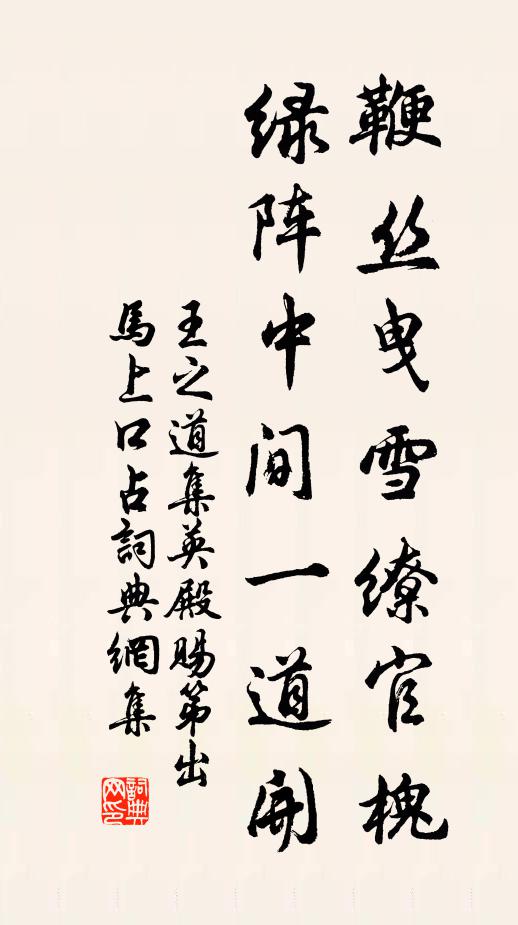 鞭丝曳雪缭官槐
绿阵中间一道开
王之道集英殿赐第出
馬上口占詞典網集
詞典
网印